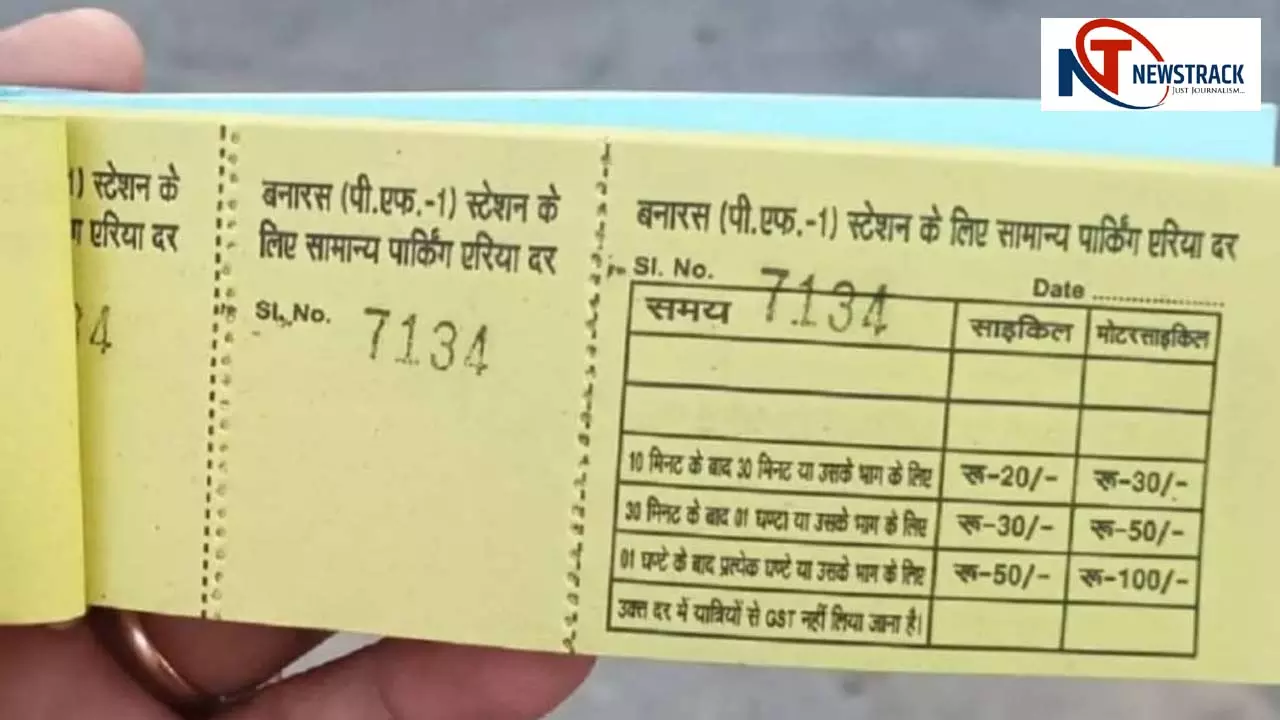 NT NEWSTRACK
JUST JOURNALISM...
1) स्टेशन के
एरिया दर
34
बनारस (पी.एफ.-1) स्टेशन के
लिए सामान्य पार्किंग एरिया दर
Sl. No. 7134
बनारस (पी.एफ.-1) स्टेशन के लिए सामान्य पार्किंग एरिया दर
Sl. No. 7134 Date ....................
समय साइकिल मोटरसाइकिल
10 मिनट के बाद 30 मिनट या उसके भाग के लिए रू-20/- रू-30/-
30 मिनट के बाद 01 घण्टा या उसके भाग के लिए रू-30/- रू-50/-
01 घण्टे के बाद प्रत्येक घण्टे या उसके भाग के लिए रू-50/- रू-100/-
उक्त दर में यात्रियों से GST नहीं लिया जाना है।